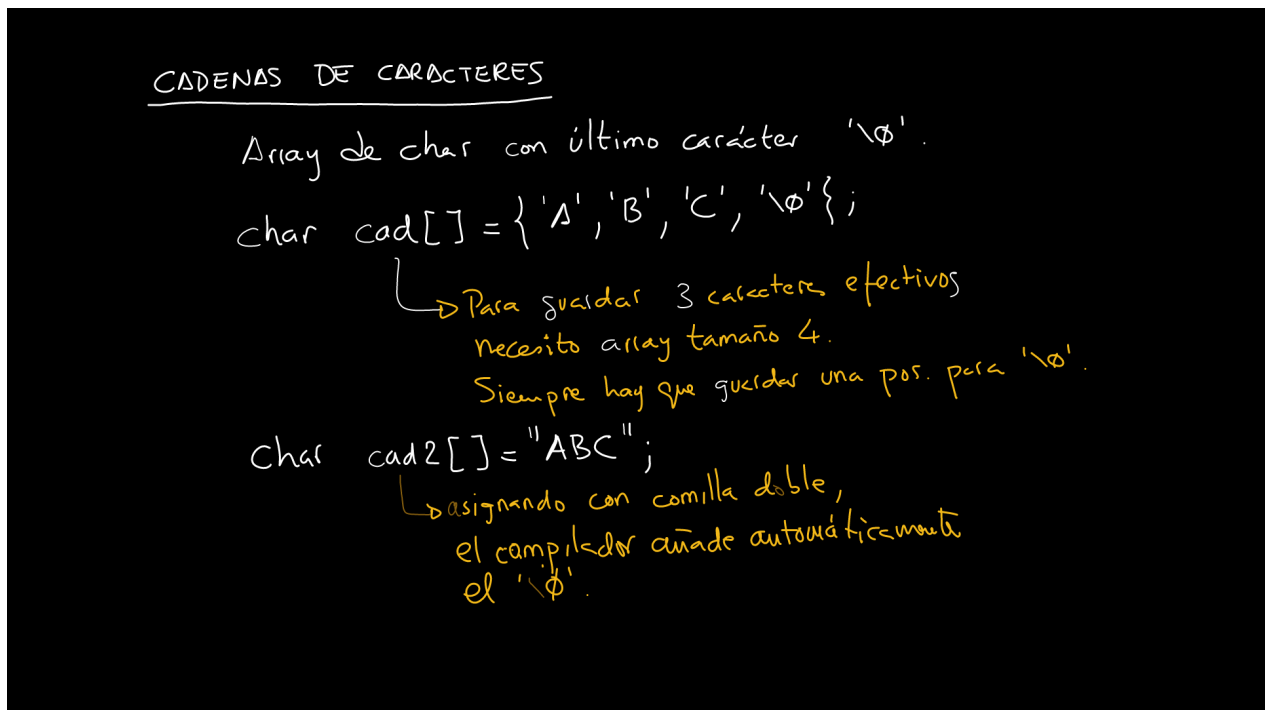 CADENAS DE CARACTERES
Array de char con último carácter '\0'.
char cad[] = { 'A', 'B', 'C', '\0' };
Para guardar 3 caracteres efectivos
necesito array tamaño 4.
Siempre hay que guardar una pos. para '\0'.
char cad2[] = "ABC";
asignando con comilla doble,
el compilador añade automáticamente
el '\0'.